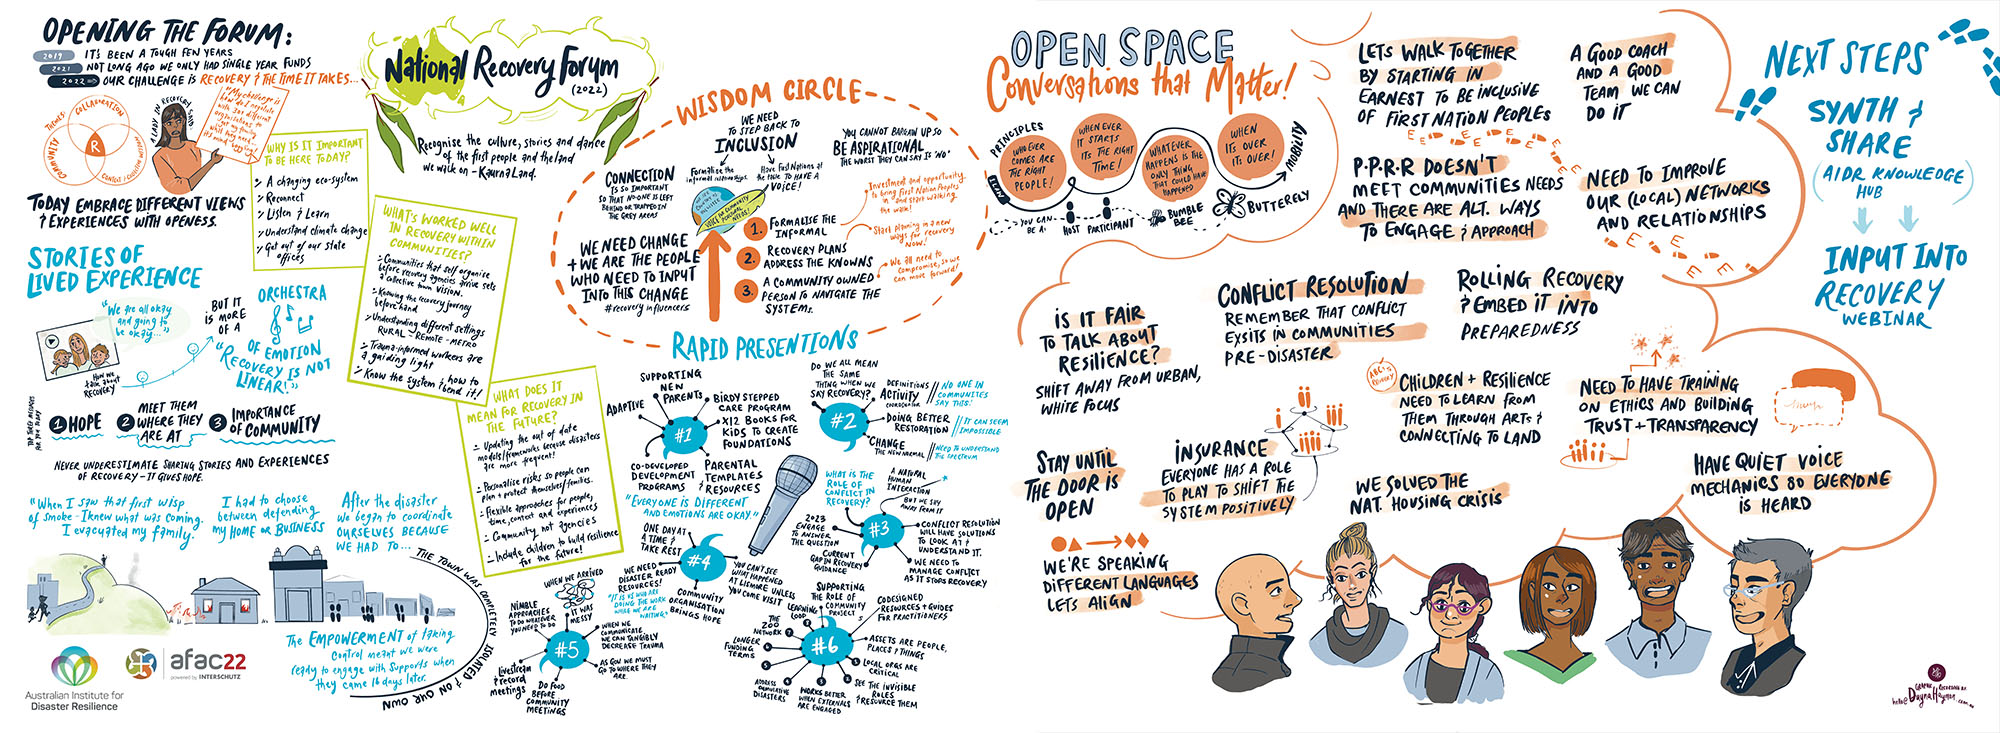 OPENING THE FORUM:
2019 IT'S BEEN A TOUGH FEW YEARS
2021 NOT LONG AGO WE ONLY HAD SINGLE YEAR FUNDS
2022 OUR CHALLENGE IS RECOVERY & THE TIME IT TAKES...
THEMES
COLLABORATION
COMMUNITY
R
LADY IN RECOVERY SAID
"My challenge is
how do I negotiate
with 300 different
organisations to
get my family
what they need...
its mind-boggling!
TODAY EMBRACE DIFFERENT VIEWS
& EXPERIENCES WITH OPENESS.
WHY IS IT IMPORTANT
TO BE HERE TODAY?
A changing eco-system
Reconnect
Listen & Learn
Understand climate change
Get out of our state
offices
National Recovery Forum
(2022)
Recognise the culture, stories and dance
of the first people and the land
we walk on - Kaurna Land.
STORIES OF
LIVED EXPERIENCE
"We are all okay
and going to
be okay..."
HOW WE
talk about
RECOVERY
BUT IT
IS MORE
OF A
ORCHESTRA
OF EMOTION
"RECOVERY IS NOT
LINEAR!"
TOP THREE MESSAGES
FOR YOU TODAY
1 HOPE
2 MEET THEM
WHERE THEY
ARE AT
3 IMPORTANCE
OF COMMUNITY
NEVER UNDERESTIMATE SHARING STORIES AND EXPERIENCES
OF RECOVERY - IT GIVES HOPE.
"When I saw that first wisp
of smoke - I knew what was coming.
I evacuated my family."
I had to choose
between defending
my HOME OR BUSINESS
After the disaster
we began to coordinate
OURSELVES BECAUSE
WE HAD TO...
THE TOWN WAS COMPLETELY ISOLATED & ON OUR OWN
The EMPOWERMENT of taking
control meant we were
ready to engage with supports when
they came 16 days later.
Australian Institute for
Disaster Resilience
afac22
powered by INTERSCHUTZ
WHAT'S WORKED WELL
IN RECOVERY WITHIN
COMMUNITIES?
Communities that self organise
before recovery agencies arrive sets
a collective town vision.
Knowing the recovery journey
before hand
Understanding different settings
RURAL - REMOTE - METRO
Trauma-informed workers are
a guiding light
Know the system & how to
bend it!
WHAT DOES IT
MEAN FOR RECOVERY IN
THE FUTURE?
Updating the out of date
models/frameworks because disasters
are more frequent!
Personalise risks so people can
plan + protect themselves/families.
Flexible approaches for people,
time, context and experiences
Community not agencies
Include children to build resilience
for the future!
WISDOM CIRCLE
WE NEED
TO STEP BACK TO
INCLUSION
Formalise the
informal relationships.
Have First Nations at
the table TO HAVE A
VOICE!
YOU CANNOT BARGAIN UP SO
BE ASPIRATIONAL
THE WORST THEY CAN SAY IS 'NO'
CONNECTION
IS SO IMPORTANT
SO THAT NO-ONE IS LEFT
BEHIND OR TRAPPED IN
THE GREY AREAS
WE NEED CHANGE
+ WE ARE THE PEOPLE
WHO NEED TO INPUT
INTO THIS CHANGE
#recovery influencers
1. FORMALISE THE
INFORMAL
2. RECOVERY PLANS
ADDRESS THE KNOWNS
3. A COMMUNITY OWNED
PERSON TO NAVIGATE THE
SYSTEMS.
Investment and opportunity
to bring First Nation Peoples
in and start walking
the walk!
Start planning in a new
ways for recovery
NOW!
We all need to
compromise, so we
can move forward!
RAPID PRESENTIONS
#1
SUPPORTING
NEW
PARENTS
ADAPTIVE
BIRDY STEPPED
CARE PROGRAM
X12 BOOKS FOR
KIDS TO CREATE
FOUNDATIONS
CO-DEVELOPED
DEVELOPMENT
PROGRAMS
PARENTAL
TEMPLATES
& RESOURCES
"EVERYONE IS DIFFERENT
AND EMOTIONS ARE OKAY"
#2
DO WE ALL MEAN
THE SAME
THING WHEN WE
SAY RECOVERY?
DEFINITIONS
ACTIVITY
COORDINATION
NO ONE IN
COMMUNITIES
SAY THIS.
DOING BETTER
RESTORATION
IT CAN SEEM
IMPOSSIBLE
CHANGE
THE NEW NORMAL
NEED TO UNDERSTAND
THE SPECTRUM
#3
WHAT IS THE
ROLE OF
CONFLICT IN
RECOVERY?
A NATURAL
HUMAN
INTERACTION
BUT WE SHY
AWAY FROM IT
2023
ENGAGE
TO ANSWER
THE QUESTION
CURRENT
GAP IN RECOVERY
GUIDANCE
CONFLICT RESOLUTION
WILL HAVE SOLUTIONS
TO LOOK AT &
UNDERSTAND IT.
WE NEED TO
MANAGE CONFLICT
AS IT STOPS RECOVERY
#4
ONE DAY AT
A TIME &
TAKE REST
WE NEED
DISASTER READY
RESOURCES!
"IT IS US WHO ARE
DOING THE WORK
WHILE WE ARE
WAITING"
YOU CAN'T SEE
WHAT HAPPENED
AT LISMORE UNLESS
YOU COME VISIT
COMMUNITY
ORGANISATION
BRINGS HOPE
#5
WHEN WE ARRIVED
IT WAS
MESSY
NIMBLE
APPROACHES
TO DO WHATEVER
YOU NEED TO DO
WHEN WE
COMMUNICATE
WE CAN TANGIBLY
DECREASE TRAUMA
AS GOV WE MUST
GO TO WHERE THEY
ARE.
DO FOOD
BEFORE
COMMUNITY
MEETINGS
Livestream
& record
meetings
#6
SUPPORTING
THE ROLE OF
COMMUNITY
PROJECTS
LEARNING
LOOP
THE
200
NETWORK
LONGER
FUNDING
TERMS
ADDRESS
CUMULATIVE
DISASTERS
WORKS BETTER
WHEN EXTERNALS
ARE ENGAGED
CODESIGNED
RESOURCES + GUIDES
FOR PRACTITIONERS
ASSETS ARE PEOPLE,
PLACES & THINGS
LOCAL ORGS ARE
CRITICAL
SEE THE INVISIBLE
ROLES
& RESOURCE THEM
OPEN SPACE
Conversations that Matter!
PRINCIPLES
WHO EVER
COMES ARE
THE RIGHT
PEOPLE!
WHEN EVER
IT STARTS
IT'S THE RIGHT
TIME!
WHATEVER
HAPPENS IS THE
ONLY THING
THAT COULD HAVE
HAPPENED
WHEN
IT'S OVER
IT'S OVER!
MOBILITY
YOU CAN
BE A:
HOST
PARTICIPANT
BUMBLE
BEE
BUTTERFLY
LETS WALK TOGETHER
BY STARTING IN
EARNEST TO BE INCLUSIVE
OF FIRST NATION PEOPLES
A GOOD COACH
AND A GOOD
TEAM WE CAN
DO IT
P.P.R.R DOESN'T
MEET COMMUNITIES NEEDS
AND THERE ARE ALT. WAYS
TO ENGAGE & APPROACH
NEED TO IMPROVE
OUR (LOCAL) NETWORKS
AND RELATIONSHIPS
IS IT FAIR
TO TALK ABOUT
RESILIENCE?
SHIFT AWAY FROM URBAN,
WHITE FOCUS
CONFLICT RESOLUTION
REMEMBER THAT CONFLICT
EXSITS IN COMMUNITIES
PRE-DISASTER
ROLLING RECOVERY
& EMBED IT INTO
PREPAREDNESS
ABC's
of RECOVERY
CHILDREN + RESILIENCE
NEED TO LEARN FROM
THEM THROUGH ARTS &
CONNECTING TO LAND
NEED TO HAVE TRAINING
ON ETHICS AND BUILDING
TRUST + TRANSPARENCY
STAY UNTIL
THE DOOR IS
OPEN
INSURANCE
EVERYONE HAS A ROLE
TO PLAY TO SHIFT THE
SYSTEM POSITIVELY
WE SOLVED THE
NAT. HOUSING CRISIS
HAVE QUIET VOICE
MECHANICS SO EVERYONE
IS HEARD
WE'RE SPEAKING
DIFFERENT LANGUAGES
LETS ALIGN
NEXT STEPS
SYNTH &
SHARE
(AIDR KNOWLEDGE
HUB)
INPUT INTO
RECOVERY
WEBINAR